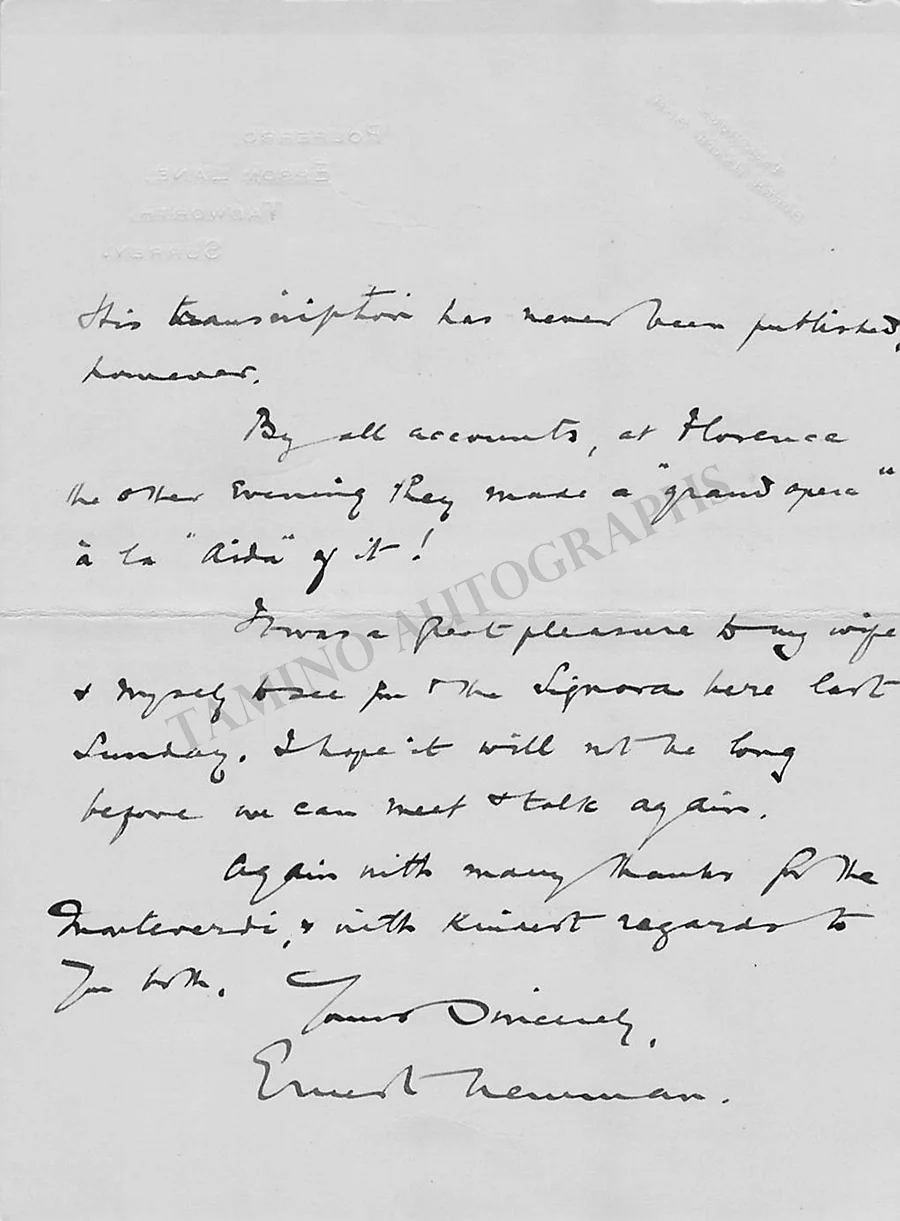 POLPERRO,
EPSOM LANE,
TADWORTH,
SURREY.
His transcription has never been published,
however.
By all accounts, at Florence
the other evening they made a "grand opera"
à la "Aida" of it!
It was a great pleasure to my wife
& myself to see you & the Signora here last
Sunday. I hope it will not be long
before we can meet & talk again.
Again with many thanks for the
Monteverdi, & with kindest regards to
you both.
Yours Sincerely,
Ernest Newman.
TAMINO AUTOGRAPHS